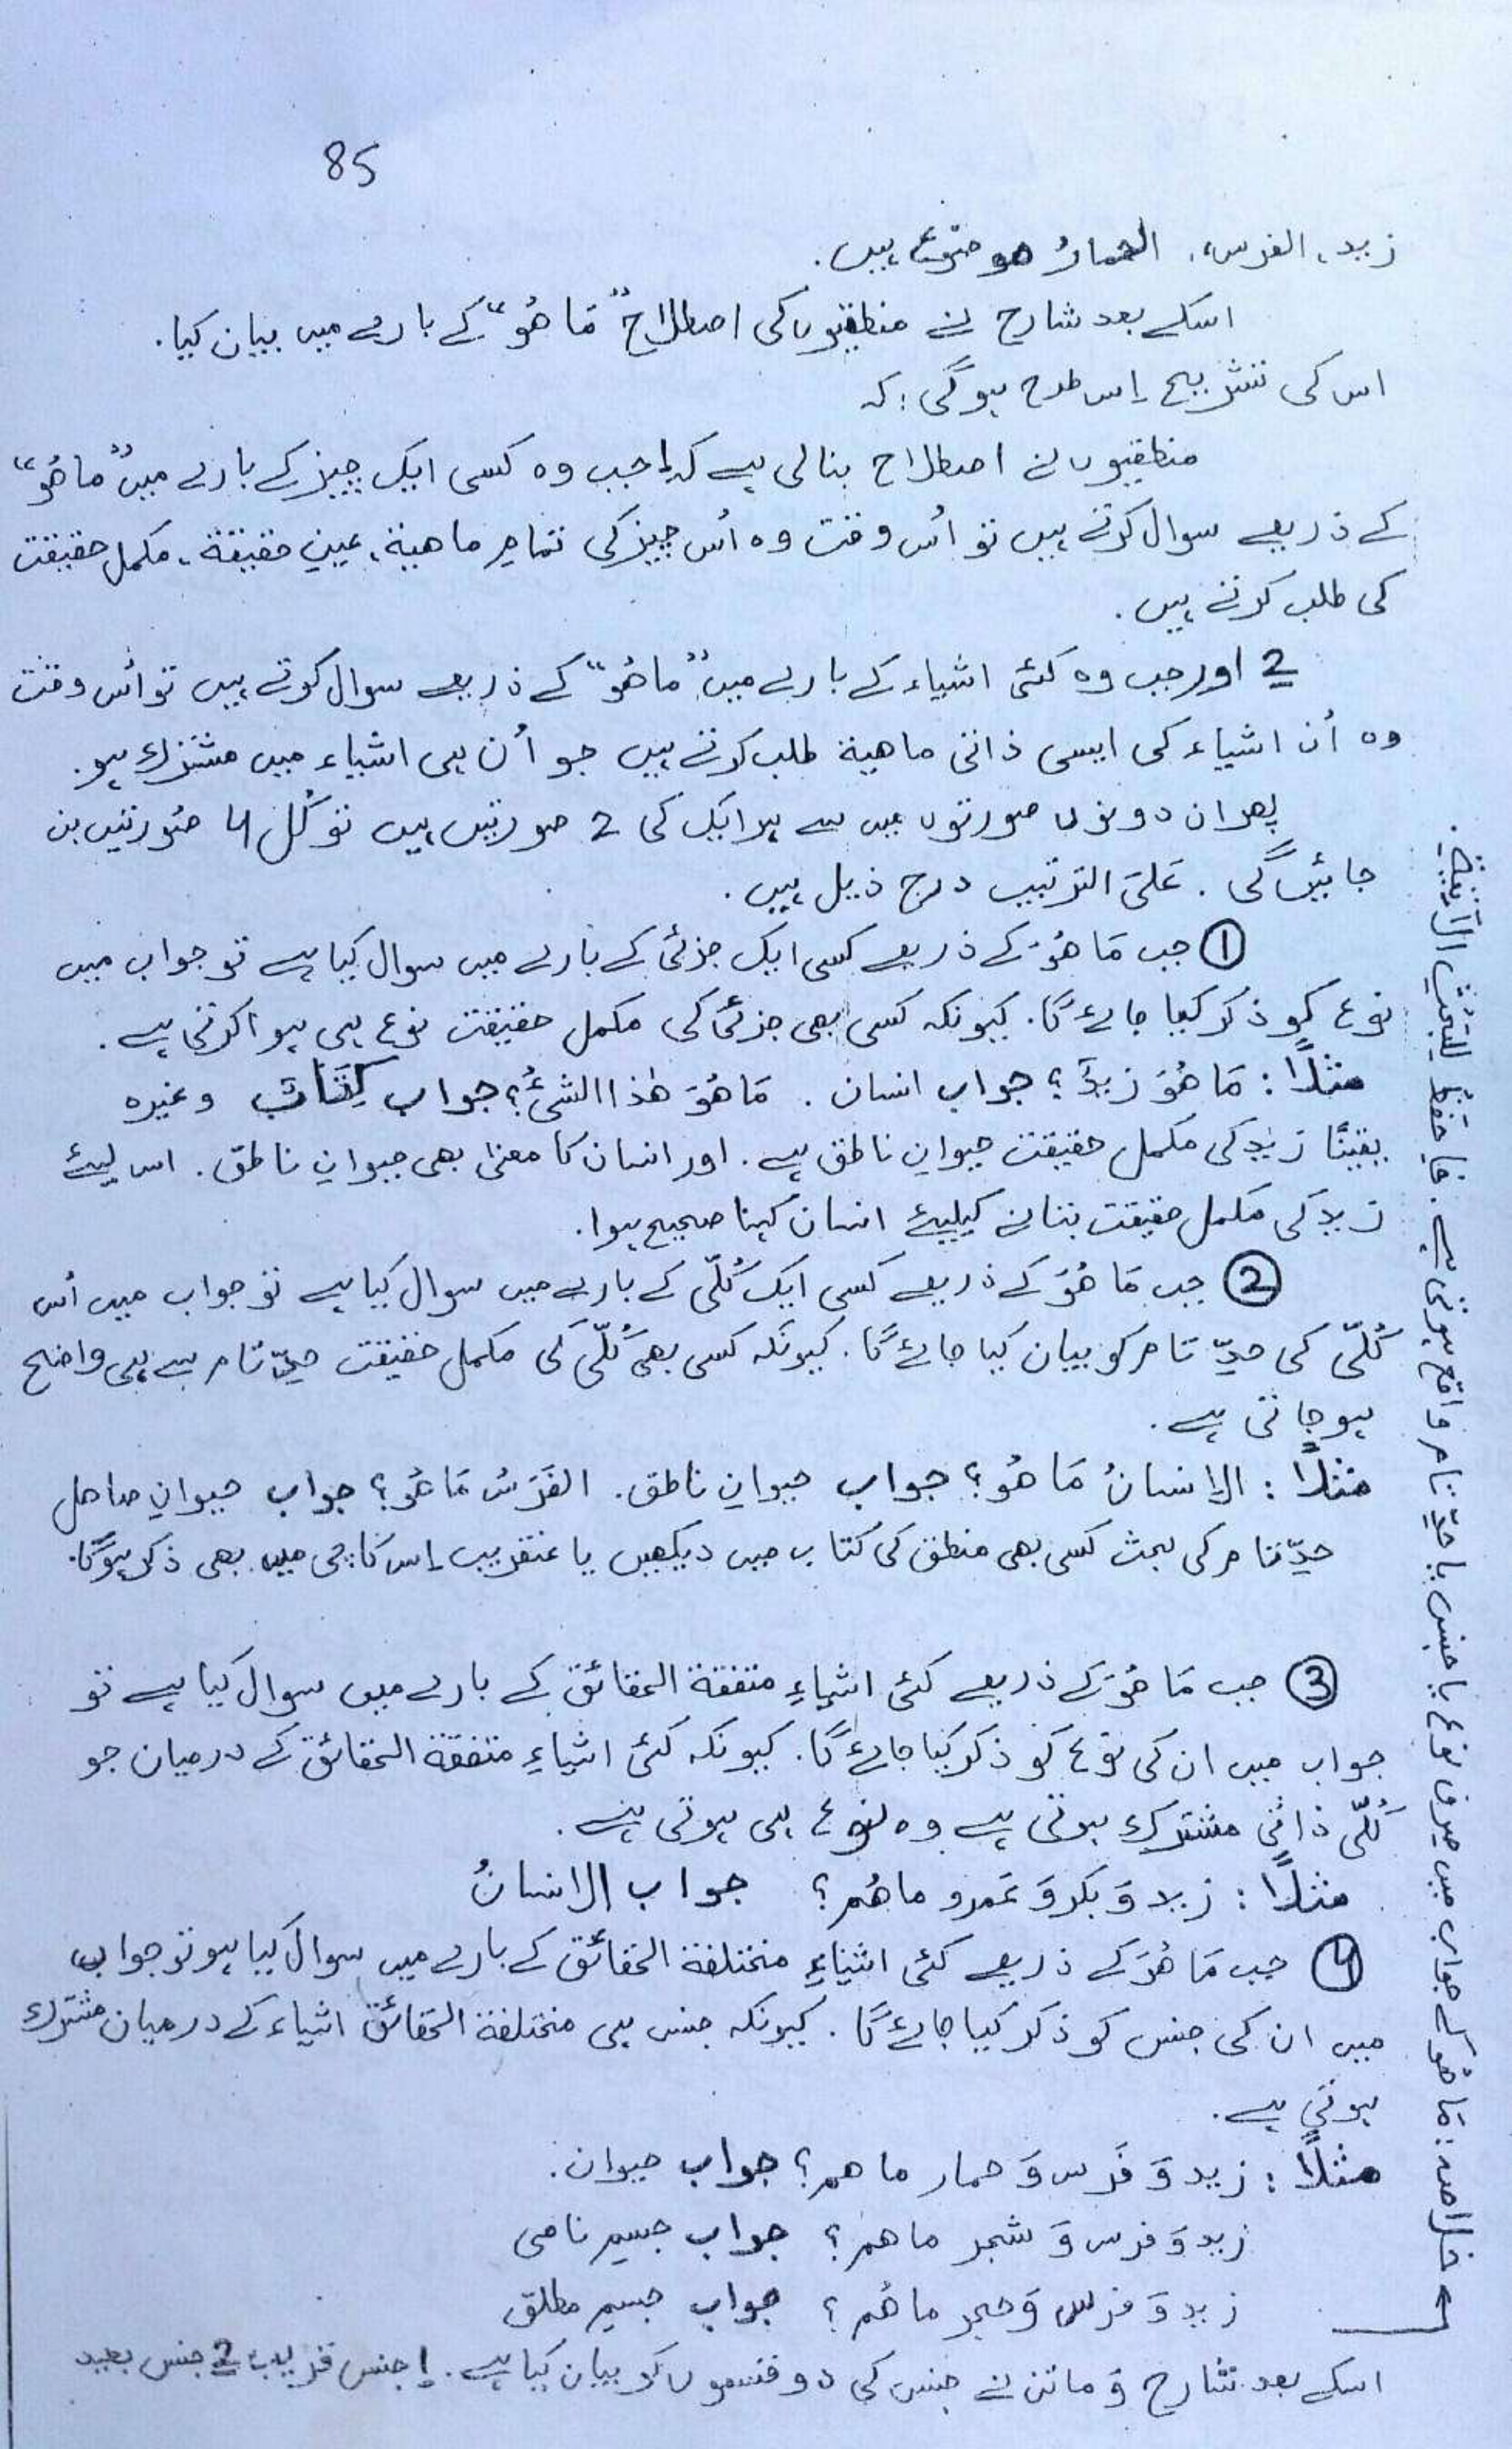 85
زید، الفرس، الحمارُ موضوع ہیں.
اسکے بعد شارح نے منطقیوں کی اصطلاح "مَا هُو" کے بارے میں بیان کیا.
اس کی تشریح اِس طرح ہوگی: کہ
منطقیوں نے اصطلاح بنالی ہے کہ 1 جب وہ کسی ایک چیز کے بارے میں "ما هُو"
کے ذریعے سوال کرتے ہیں تو اُس وقت وہ اُس چیز کی تمامِ ماهیة، عینِ حقیقة، مکمل حقیقت
کی طلب کرتے ہیں.
2 اور جب وہ کئی اشیاء کے بارے میں "ما هُو" کے ذریعے سوال کرتے ہیں تو اُس وقت
وہ اُن اشیاء کی ایسی ذاتی ماهیة طلب کرتے ہیں جو اُن ہی اشیاء میں مشترک ہو.
پھر ان دونوں صورتوں میں سے ہر ایک کی 2 صورتیں ہیں تو کُل 4 صُورتیں بن
جائیں گی. عَلیَ الترتیب درج ذیل ہیں.
① جب مَا هُوَ کے ذریعے کسی ایک جزئی کے بارے میں سوال کیا ہے تو جواب میں
نوع کو ذکر کیا جائے گا. کیونکہ کسی بھی جزئی کی مکمل حقیقت نوع ہی ہوا کرتی ہے.
مثلاً: مَا هُوَ زیدٌ؟ جواب انسان. مَا هُوَ هٰذا الشیُٔ؟ جواب کِتَابٌ وغیرہ
یقیناً زید کی مکمل حقیقت حیوانِ ناطق ہے. اور انسان کا معنیٰ بھی حیوانِ ناطق. اس لیئے
زید کی مکمل حقیقت بتانے کیلیئے انسان کہنا صحیح ہوا.
② جب مَا هُوَ کے ذریعے کسی ایک کُلّی کے بارے میں سوال کیا ہے تو جواب میں اُس
کُلّی کی حدِّ تام کو بیان کیا جائے گا. کیونکہ کسی بھی کُلّی کی مکمل حقیقت حدِّ تام سے ہی واضح
ہوجاتی ہے.
مثلاً: الانسانُ مَا هُو؟ جواب حیوانِ ناطق. الفَرَسُ مَا هُو؟ جواب حیوانِ صاهل
حدِّ تام کی بحث کسی بھی منطق کی کتاب میں دیکھیں یا عنقریب اِس کاپی میں بھی ذکر ہوگا.
③ جب مَا هُوَ کے ذریعے کئی اشیاءِ متفقة الحَقائق کے بارے میں سوال کیا ہے تو
جواب میں ان کی نوع کو ذکر کیا جائے گا. کیونکہ کئی اشیاءِ متفقة الحَقائق کے درمیان جو
کُلّی ذاتی مشترک ہوتی ہے وہ نوع ہی ہوتی ہے.
مثلاً: زید وَ بکر وَ عَمرو ما هُم؟ جواب الانسانُ
④ جب مَا هُوَ کے ذریعے کئی اشیاءِ مختلفة الحَقائق کے بارے میں سوال کیا ہو تو جواب
میں ان کی جنس کو ذکر کیا جائے گا. کیونکہ جنس ہی مختلفة الحَقائق اشیاء کے درمیان مشترک
ہوتی ہے.
مثلاً: زید وَ فَرس وَ حمار ما هم؟ جواب حیوان.
زید وَ فرس وَ شجر ما هم؟ جواب جسمِ نامی
زید وَ فرس وَ حجر ما هُم؟ جواب جسمِ مطلق
اسکے بعد شارح وَ ماتن نے جنس کی دو قسموں کو بیان کیا ہے. 1 جنس قریب 2 جنس بعید
خلاصہ: مَا هُو کے جواب میں صِرف نوع یا جنس یا حدِّ تام واقع ہوتی ہے. فاحفَظ للبَحْثِ الآتیة.